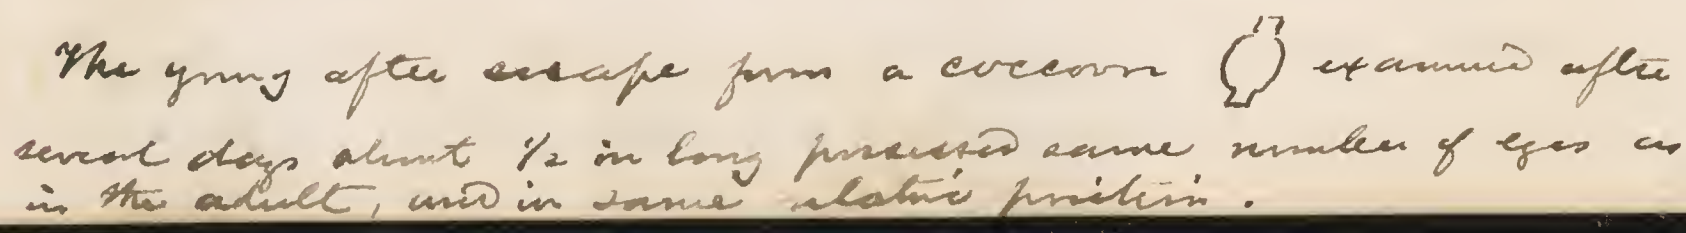 The young after escape from a coccoon examined after
several days about 1/2 in long possessed same number of eyes as
in the adult, and in same relative position.